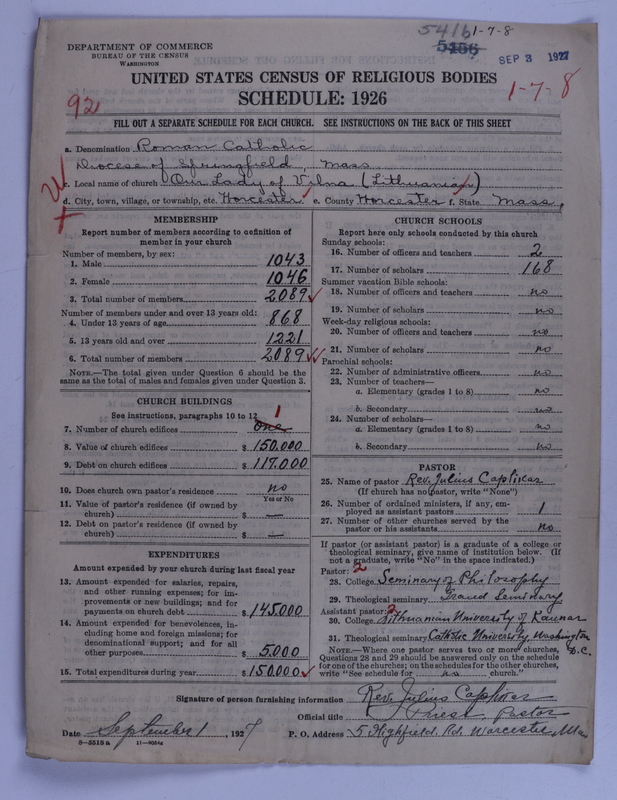 5416 1-7-8
5456
SEP 3 1927
DEPARTMENT OF COMMERCE
BUREAU OF THE CENSUS
WASHINGTON
UNITED STATES CENSUS OF RELIGIOUS BODIES
SCHEDULE: 1926
92
1-7-8
FILL OUT A SEPARATE SCHEDULE FOR EACH CHURCH. SEE INSTRUCTIONS ON THE BACK OF THIS SHEET
a. Denomination Roman Catholic
Diocese of Springfield, Mass
c. Local name of church Our Lady of Vilna (Lithuanian)
d. City, town, village, or township, etc. Worcester e. County Worcester f. State Mass.
MEMBERSHIP
Report number of members according to definition of
member in your church
Number of members, by sex:
1. Male 1043
2. Female 1046
3. Total number of members 2089
Number of members under and over 13 years old:
4. Under 13 years of age 868
5. 13 years old and over 1221
6. Total number of members 2089
NOTE.—The total given under Question 6 should be the
same as the total of males and females given under Question 3.
CHURCH BUILDINGS
See instructions, paragraphs 10 to 12
7. Number of church edifices one 1
8. Value of church edifices $ 150.000
9. Debt on church edifices $ 117.000
10. Does church own pastor's residence no
Yes or No
11. Value of pastor's residence (if owned by
church) $ —
12. Debt on pastor's residence (if owned by
church) $ —
EXPENDITURES
Amount expended by your church during last fiscal year
13. Amount expended for salaries, repairs,
and other running expenses; for im-
provements or new buildings; and for
payments on church debt $ 145.000
14. Amount expended for benevolences, in-
cluding home and foreign missions; for
denominational support; and for all
other purposes $ 5.000
15. Total expenditures during year $ 150.000
CHURCH SCHOOLS
Report here only schools conducted by this church
Sunday schools:
16. Number of officers and teachers 2
17. Number of scholars 168
Summer vacation Bible schools:
18. Number of officers and teachers no
19. Number of scholars no
Week-day religious schools:
20. Number of officers and teachers no
21. Number of scholars no
Parochial schools:
22. Number of administrative officers no
23. Number of teachers—
a. Elementary (grades 1 to 8) no
b. Secondary no
24. Number of scholars—
a. Elementary (grades 1 to 8) no
b. Secondary no
PASTOR
25. Name of pastor Rev. Julius
(If church has no pastor, write "None")
26. Number of ordained ministers, if any, em-
ployed as assistant pastors 1
27. Number of other churches served by the
pastor or his assistants no
If pastor (or assistant pastor) is a graduate of a college or
theological seminary, give name of institution below. (If
not a graduate, write "No" in the space indicated.)
Pastor: 2
28. College Seminary of Philosophy
29. Theological seminary Grand Seminary
Assistant pastor: 2
30. College Lithuanian University of Kaunas
31. Theological seminary Catholic University, Washington
D.C.
NOTE.—Where one pastor serves two or more churches,
Questions 28 and 29 should be answered only on the schedule
for one of the churches; on the schedules for the other churches,
write "See schedule for no church."
Signature of person furnishing information Rev. Julius
Official title Priest Pastor
Date September 1, 1927 P. O. Address 5 Highfield Rd. Worcester, Mass
8—5515a 11—9084a